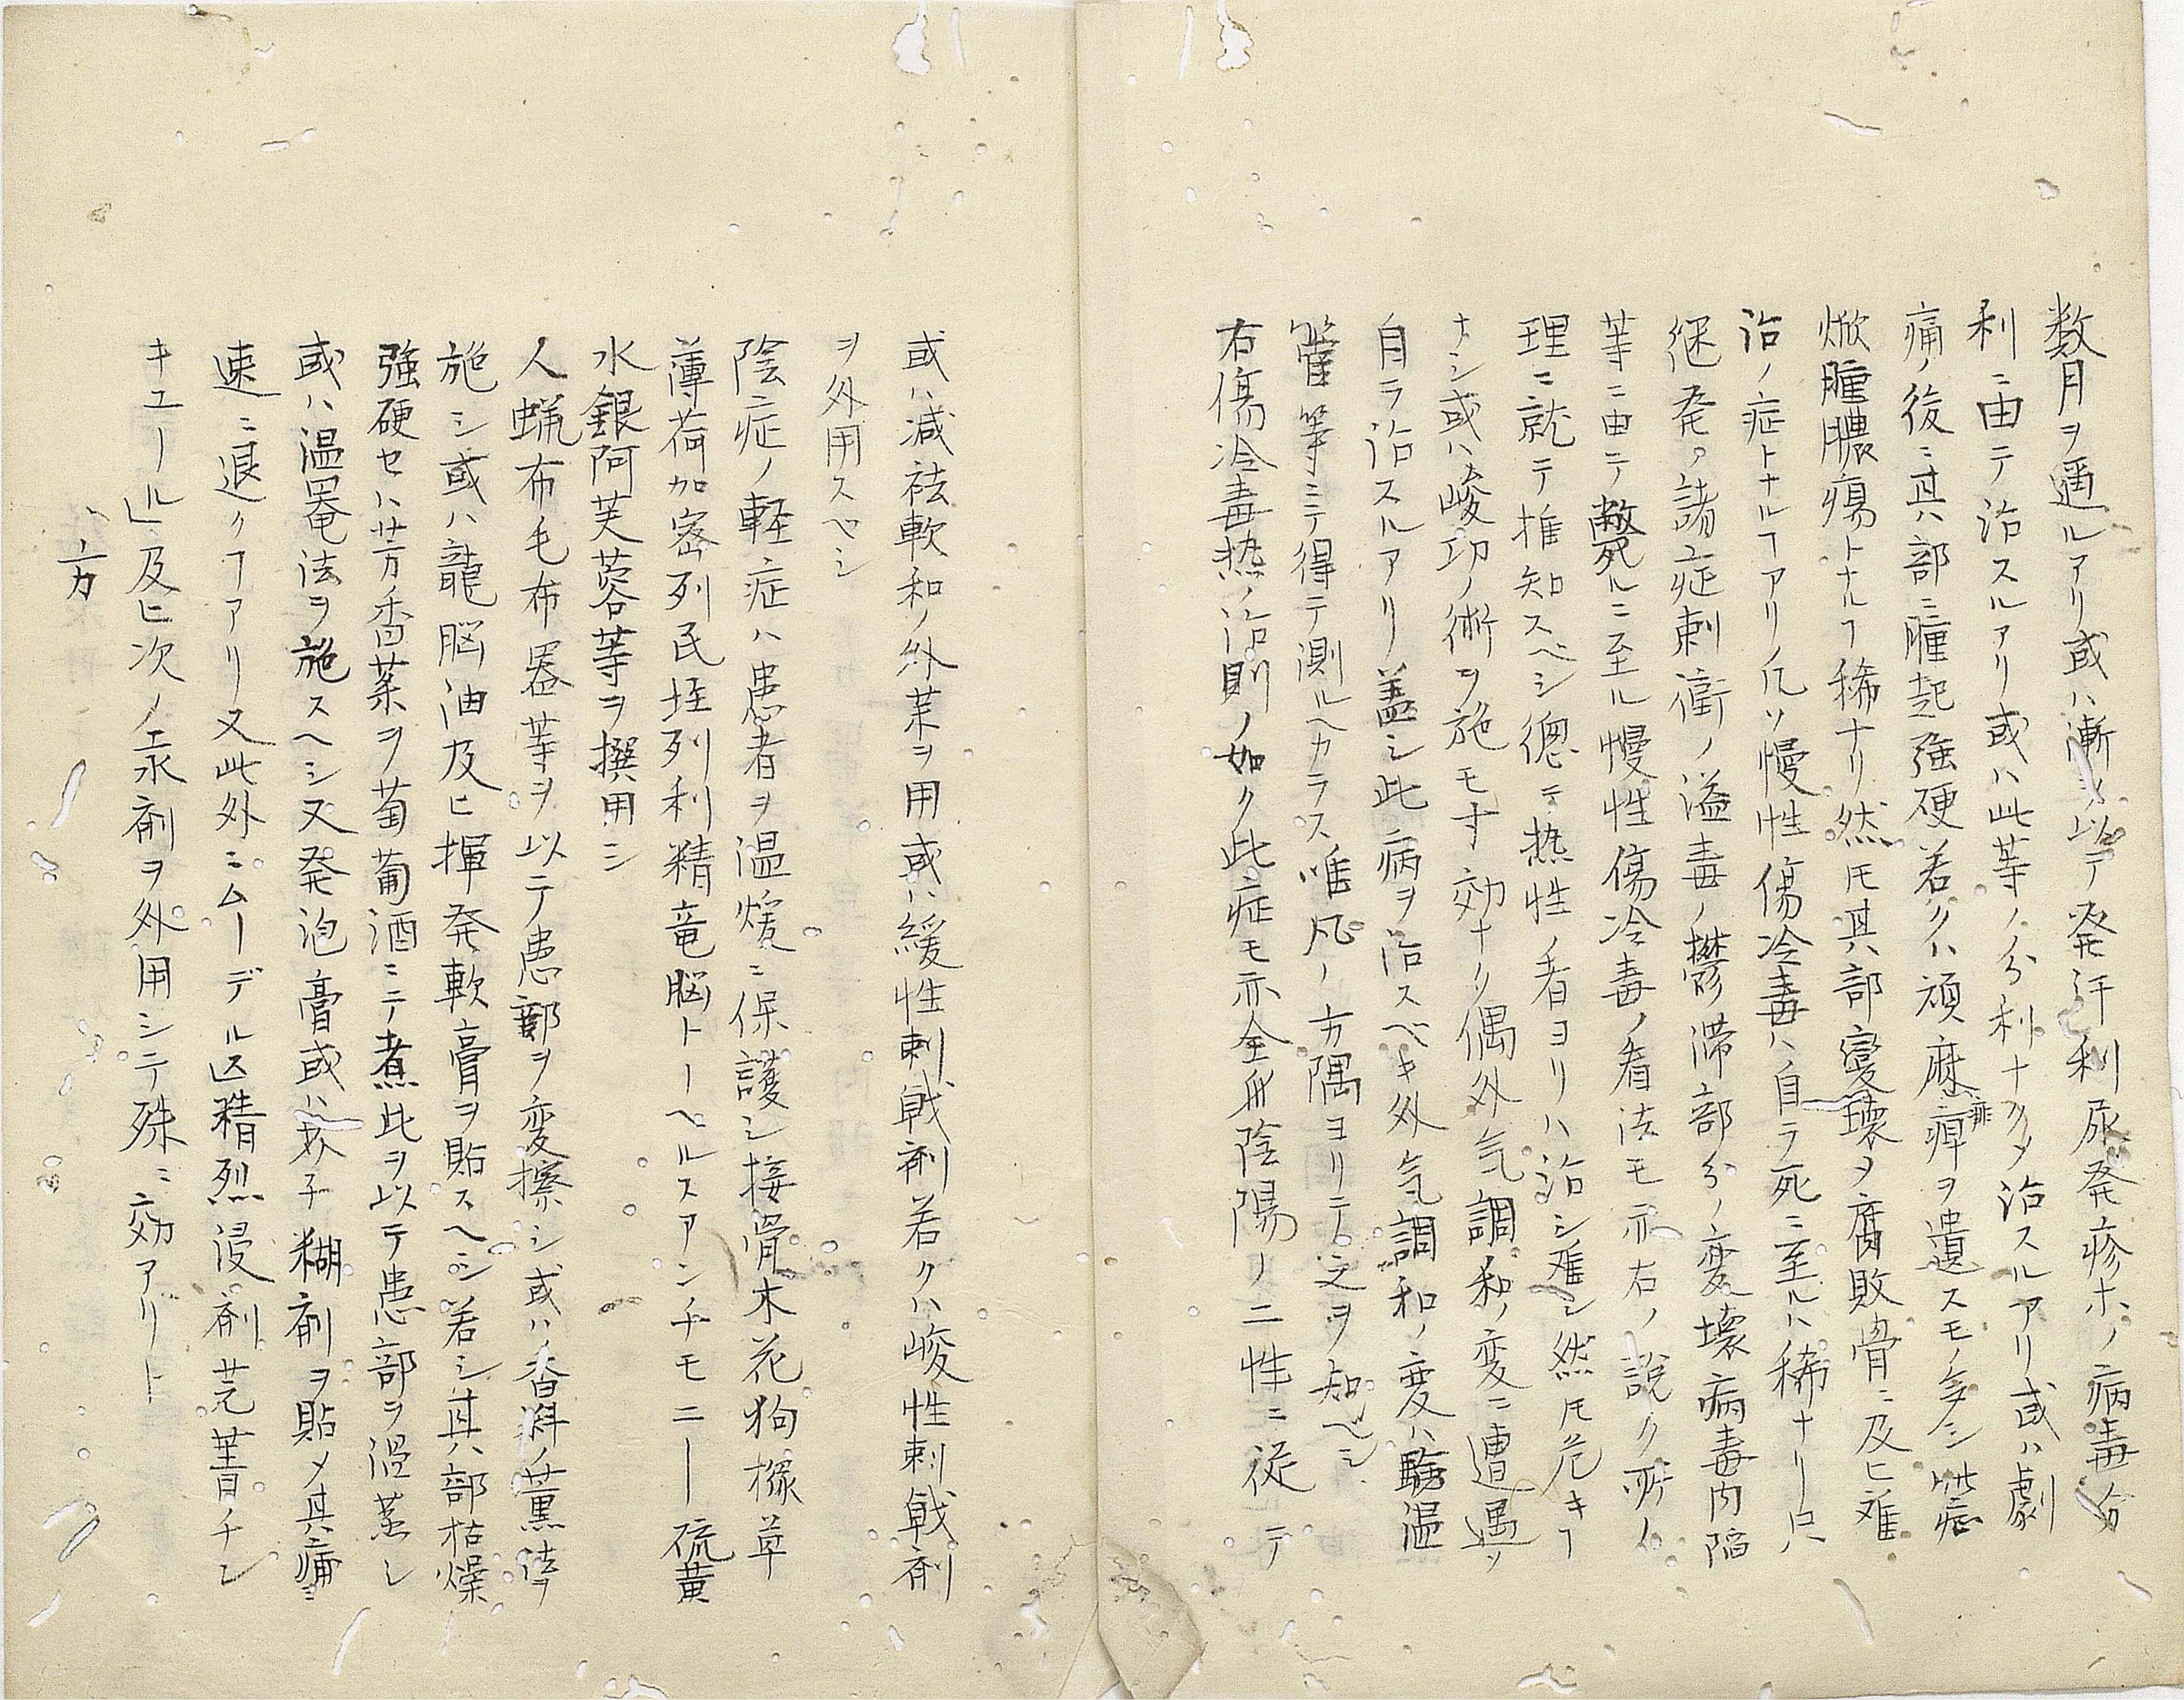 数月ヲ遁ルアリ或ハ漸ヲ以テ発汗利尿発疹ホノ病毒分
利ニ由テ治スルアリ或ハ此等ノ分利ナクメ治スルアリ或ハ劇
痛ノ後ニ其部ニ腫起強硬若クハ頑麻痺ヲ遺スモノ多シ此症
焮腫膿瘍トナルヿ稀ナリ然𪜈其部変壊ヲ腐敗骨ニ及ヒ難
治ノ症トナルヿアリ凡ソ慢性傷冷毒ハ自ラ死ニ至ルハ稀ナリ只
継発ノ諸症刺衝ノ溢毒ノ鬱滞部分ノ変壊病毒内陥
等ニ由テ斃ルニ至ル慢性傷冷毒ノ看法モ亦右ノ説ク所ノ
理ニ就テ推知スベシ総テ熱性ノ者ヨリハ治シ难シ然𪜈危キヿ
ナシ或ハ峻功ノ術ヲ施モ寸効ナク偶外気調和ノ変ニ遭遇ソ
自ラ治スルアリ蓋シ此病ヲ治スベキ外気調和ノ変ハ験温
管等ニテ得テ測ルヘカラス唯凡ノ方隅ヨリテ之ヲ知ベシ
右傷冷毒熱ノ治則ノ如ク此症モ亦全身陰陽ノ二性ニ従テ
或ハ減祛軟和ノ外薬ヲ用或ハ緩性刺戟剤若クハ峻性刺戟剤
ヲ外用スベシ
陰症ノ軽症ハ患者ヲ温煖ニ保護シ接骨木花狗橼草
薄荷加密列民垤列利精竜脳トーヘルスアンチモニー硫黄
水銀阿芙蓉等ヲ撰用シ
人蝋布毛布器等ヲ以テ患部ヲ変擦シ或ハ香料ノ薫法ヲ
施シ或ハ龍脳油及ヒ揮発軟膏ヲ貼スヘシ若シ其部枯燥
強硬セハ芳香薬ヲ葡萄酒ニテ煮此ヲ以テ患部ヲ温蒸シ
或ハ温罨法ヲ施スヘシ又発泡膏或ハ芥子糊剤ヲ貼メ其痛ミ
速ニ退クヿアリ又此外ニムーデル区精烈浸剤芫菁チン
キュール」及ヒ次ノ汞剤ヲ外用シテ殊ニ効アリト
、方